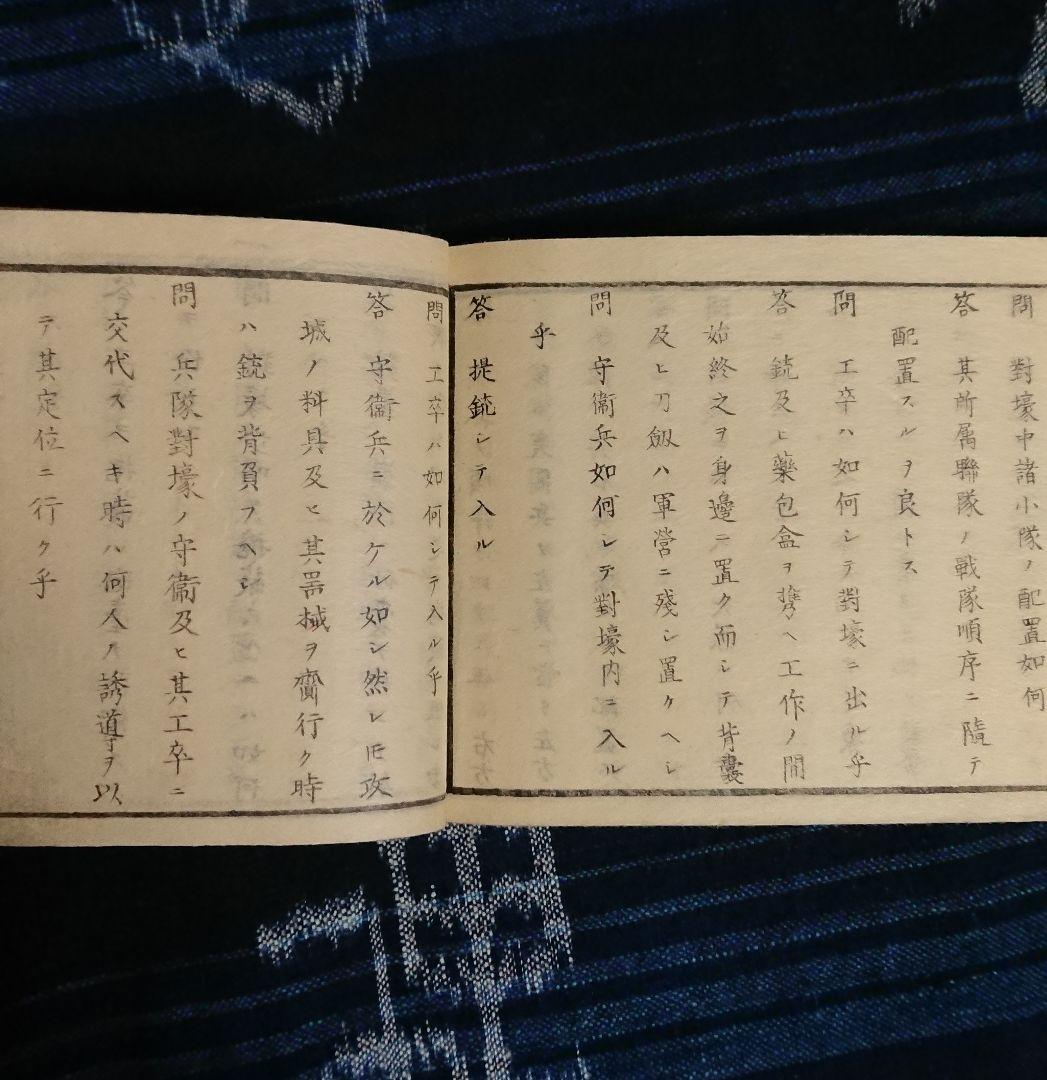 問 對壕中諸小隊ノ配置如何
答 其所属聯隊ノ戰隊順序ニ隨テ
配置スルヲ良トス
問 工卒ハ如何シテ對壕ニ出ル乎
答 銃及ヒ藥包盒ヲ携ヘ工作ノ間
始終之ヲ身邊ニ置ク而シテ背嚢
及ヒ刀劔ハ軍營ニ殘シ置クヘシ
問 守衞兵如何シテ對壕内ニ入ル
乎
答 提銃シテ入ル
問 工卒ハ如何シテ入ル乎
答 守衞兵ニ於ケル如シ然レ𪜈攻
城ノ料具及ヒ其噐械ヲ齎行ク時
ハ銃ヲ背負フヘシ
問 兵隊對壕ノ守衞及ヒ其工卒ニ
交代スヘキ時ハ何人ノ誘導ヲ以
テ其定位ニ行ク乎